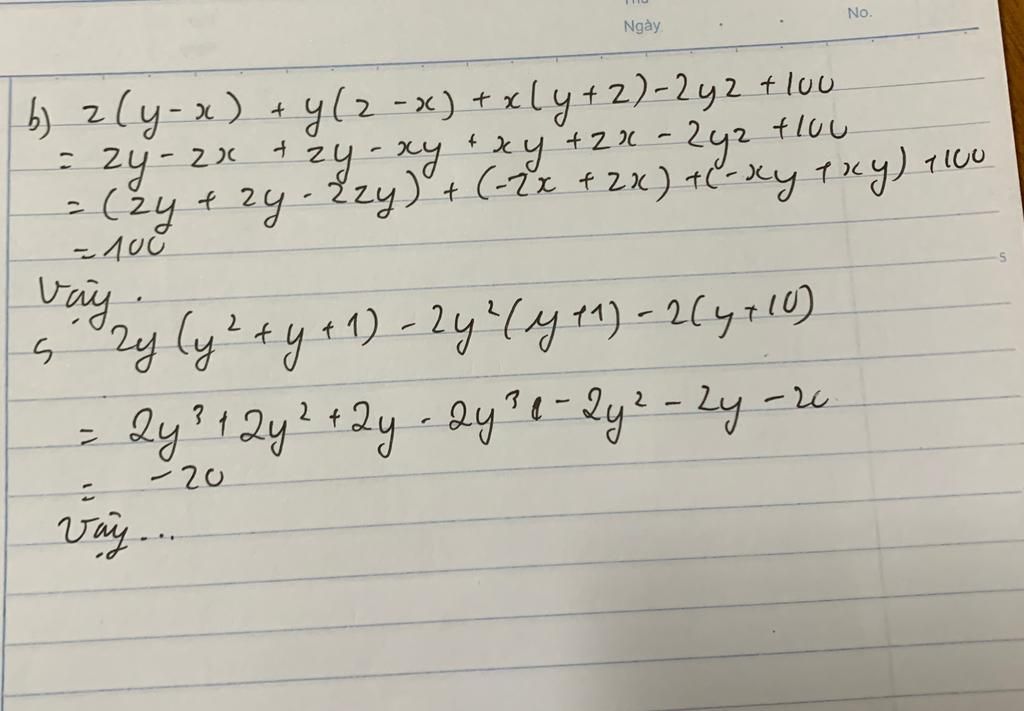 Thứ
Ngày . . No.
b) z(y-x) + y(z-x) + x(y+z) - 2yz + 100
= zy - zx + zy - xy + xy + zx - 2yz + 100
= (zy + zy - 2zy) + (-zx + zx) + (-xy + xy) + 100
= 100
Vậy .
5
c, 2y(y² + y + 1) - 2y²(y+1) - 2(y+10)
= 2y³ + 2y² + 2y - 2y³ - 2y² - 2y - 20
= -20
Vậy ...